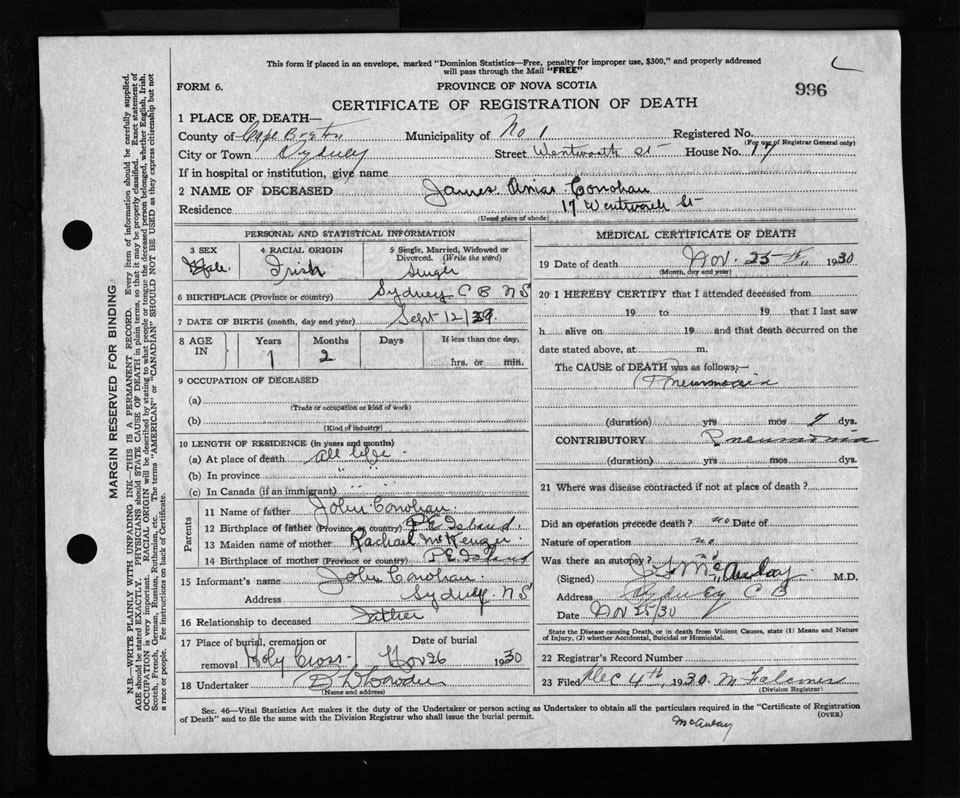 This form if placed in an envelope, marked "Dominion Statistics—Free, penalty for improper use, $300," and properly addressed
will pass through the Mail "FREE"
FORM 6. PROVINCE OF NOVA SCOTIA 996
CERTIFICATE OF REGISTRATION OF DEATH
1 PLACE OF DEATH—
County of Cape Breton Municipality of No 1 Registered No.
(For use of Registrar General only)
City or Town Sydney Street Wentworth St House No. 17
If in hospital or institution, give name
2 NAME OF DECEASED James Conohan
Residence 17 Wentworth St
(Usual place of abode)
PERSONAL AND STATISTICAL INFORMATION
3 SEX 4 RACIAL ORIGIN 5 Single, Married, Widowed or
Divorced. (Write the word)
Male Irish Single
6 BIRTHPLACE (Province or country) Sydney C B N S
7 DATE OF BIRTH (month, day and year) Sept 12/29
8 AGE IN Years Months Days If less than one day,
1 2 hrs. or min.
9 OCCUPATION OF DECEASED
(a)
(Trade or occupation or kind of work)
(b)
(Kind of industry)
10 LENGTH OF RESIDENCE (in years and months)
(a) At place of death all life
(b) In province " "
(c) In Canada (if an immigrant) " "
Parents
11 Name of father John Conohan
12 Birthplace of father (Province or country) P E Island
13 Maiden name of mother Rachael McKenzie
14 Birthplace of mother (Province or country) P E Island
15 Informant's name John Conohan
Address Sydney N S
16 Relationship to deceased Father
17 Place of burial, cremation or Date of burial
removal Holy Cross Nov 26 1930
18 Undertaker
(Name and address)
MEDICAL CERTIFICATE OF DEATH
19 Date of death Nov. 25th 1930
(Month, day and year)
20 I HEREBY CERTIFY that I attended deceased from
19 to 19 that I last saw
h alive on 19 and that death occurred on the
date stated above, at m.
The CAUSE of DEATH was as follows;—
Pneumonia
(duration) yrs mos 7 dys.
CONTRIBUTORY Pneumonia
(duration) yrs mos dys.
21 Where was disease contracted if not at place of death?
Did an operation precede death? no Date of
Nature of operation no
Was there an autopsy? no
(Signed) McAulay M.D.
Address Sydney C B
Date Nov 25/30
State the Disease causing Death, or in death from Violent Causes, state (1) Means and Nature
of Injury, (2) whether Accidental, Suicidal or Homicidal.
22 Registrar's Record Number
23 Filed Dec 4th, 1930.
(Division Registrar)
Sec. 46—Vital Statistics Act makes it the duty of the Undertaker or person acting as Undertaker to obtain all the particulars required in the "Certificate of Registration
of Death" and to file the same with the Division Registrar who shall issue the burial permit. (OVER)
McAulay
MARGIN RESERVED FOR BINDING
N.B.—WRITE PLAINLY WITH UNFADING INK—THIS IS A PERMANENT RECORD. Every item of information should be carefully supplied.
AGE should be stated EXACTLY. PHYSICIANS should STATE CAUSE OF DEATH in plain terms, so that it may be properly classified. Exact statement of
OCCUPATION is very important. RACIAL ORIGIN will be described by stating to what people or tongue the deceased person belonged, whether English, Irish,
Scotch, French, German, Russian, Ruthenian, etc. The terms "AMERICAN" or "CANADIAN" SHOULD NOT BE USED as they express citizenship but not
a race or people. See instructions on back of Certificate.